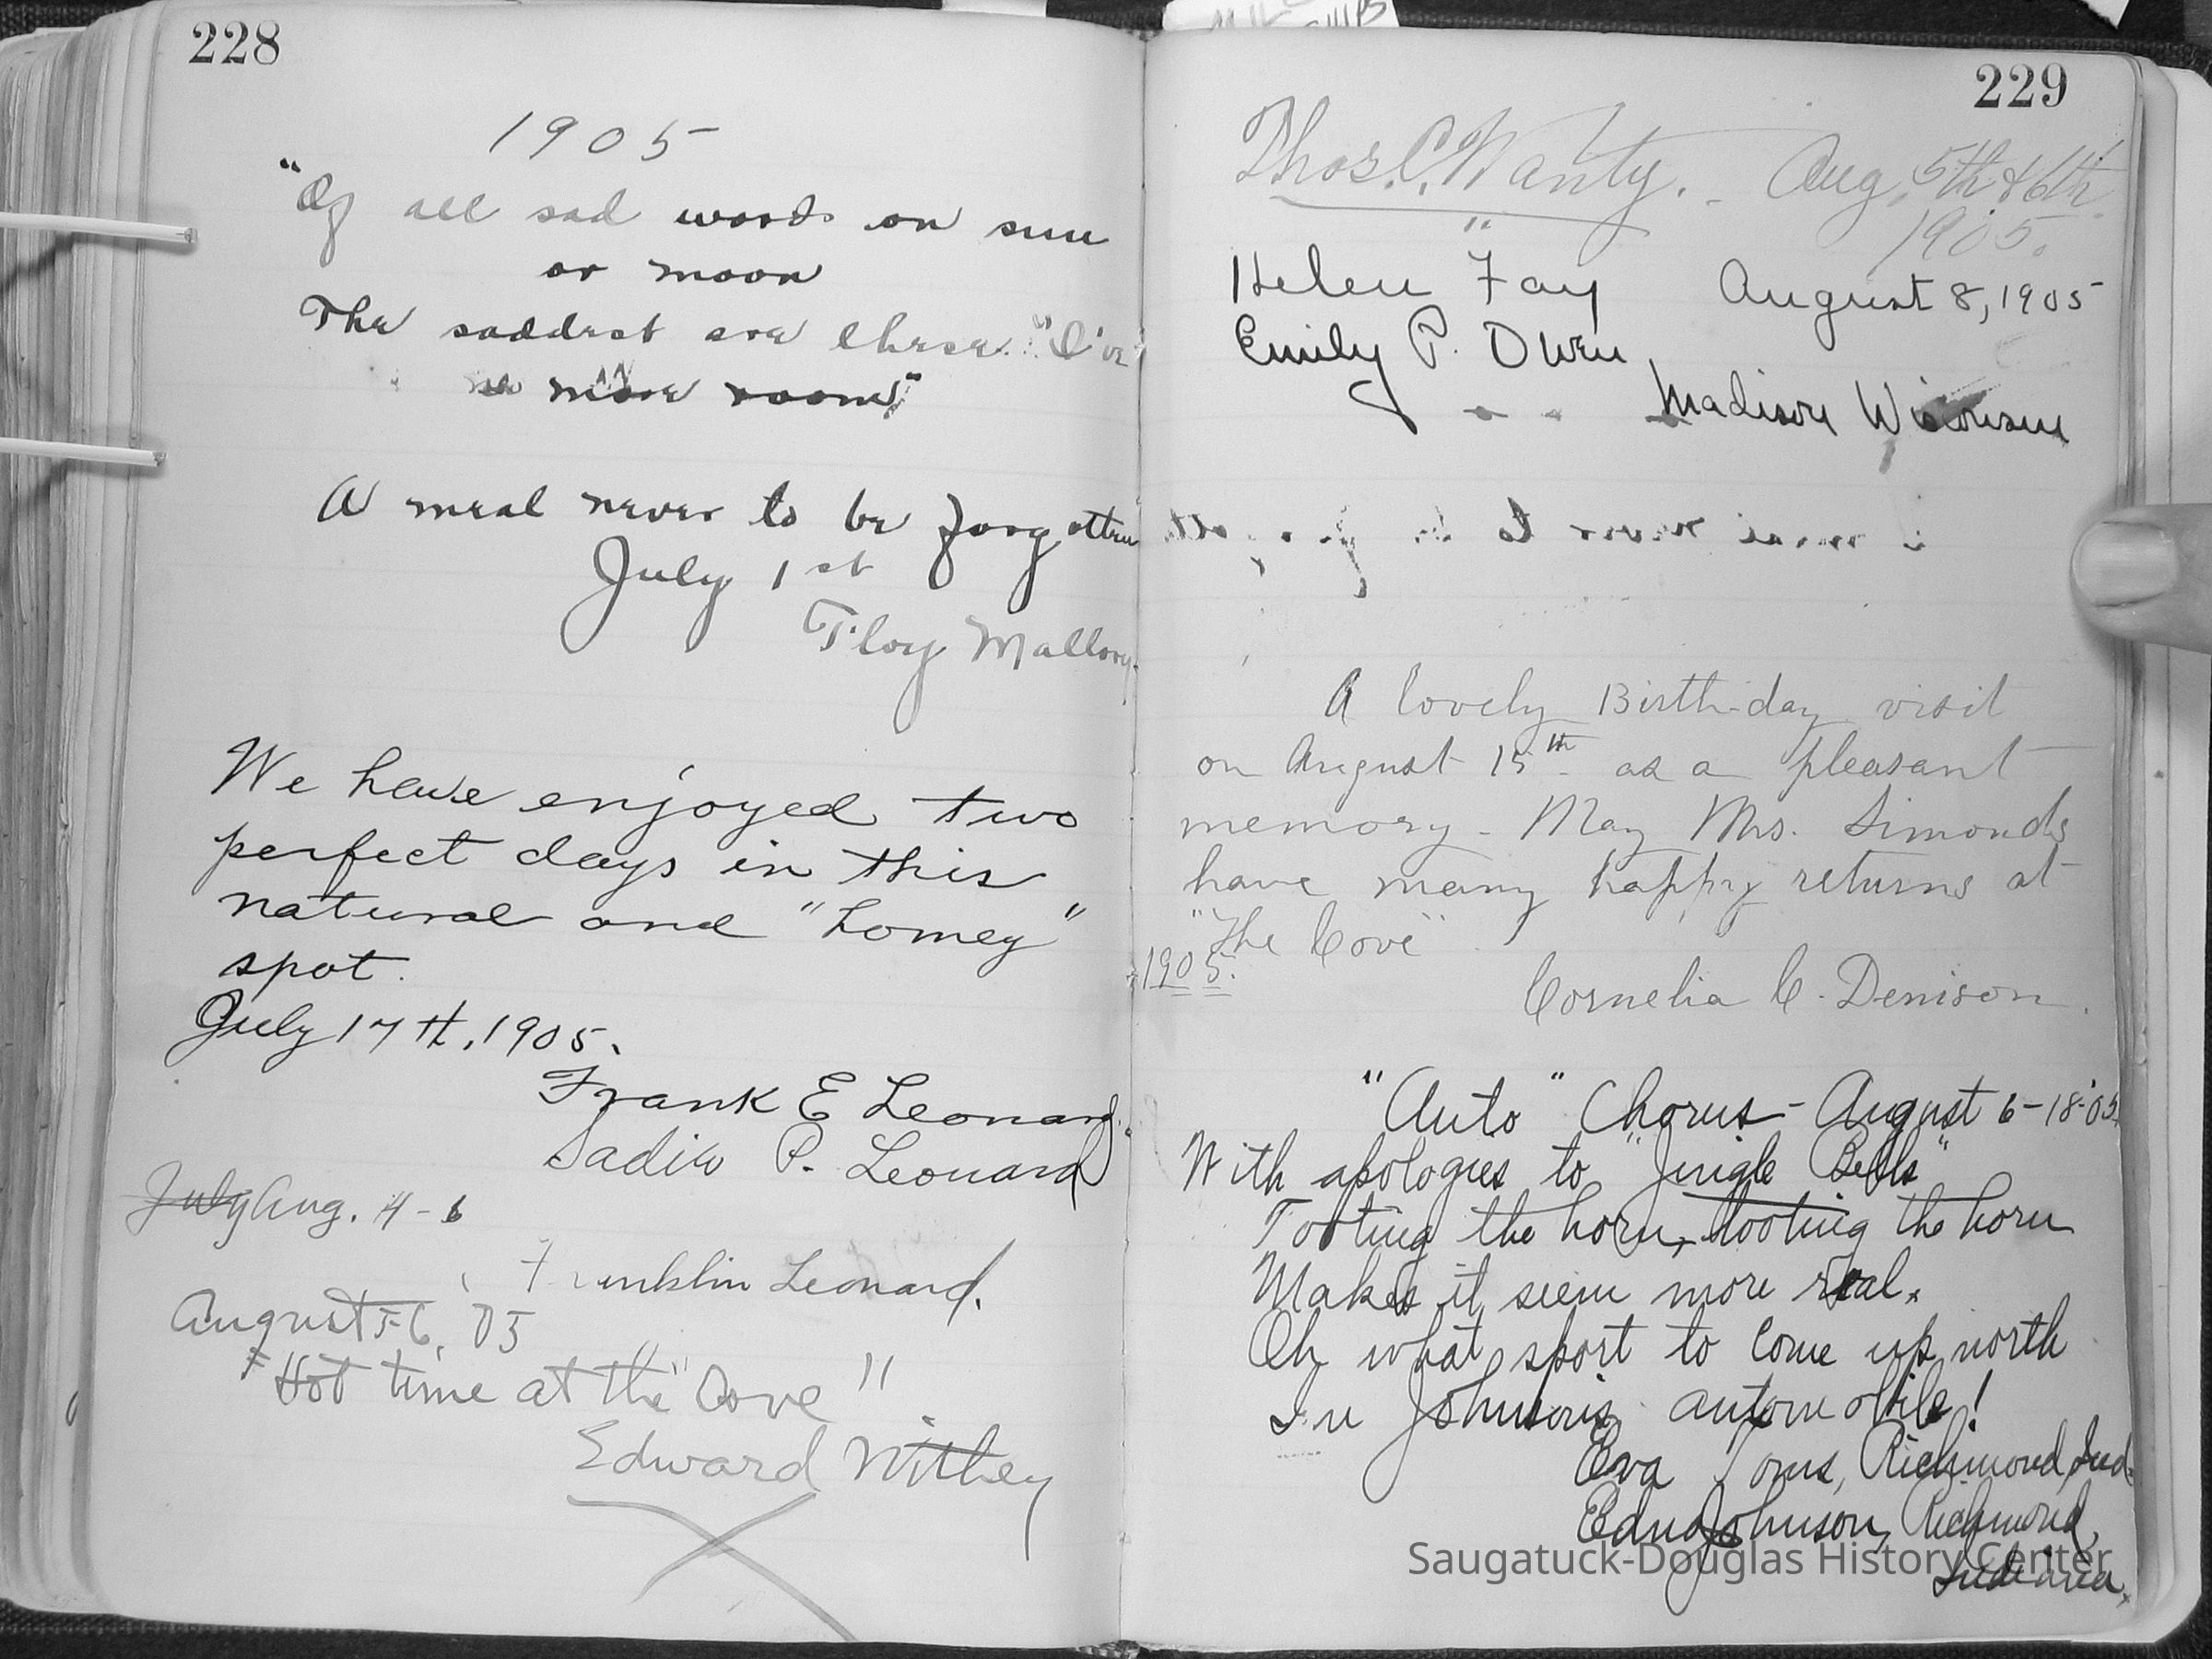 228
1905
"Of all sad words on sun
or moon
The saddest are these. "I've
no more room"
A meal never to be forgotten
July 1st
Floy Mallory.
We have enjoyed two
perfect days in this
natural and "homey"
spot.
July 17th, 1905.
Frank E Leonard.
Sadie P. Leonard
July Aug. 4-6
Franklin Leonard.
August 5-6, 05
"Hot time at the "Cove"
Edward Withey
229
Thos. C. Wanty. - Aug. 5th & 6th.
1905.
Helen Fay August 8, 1905
Emily P. Owen
Madison Wisconsin
A lovely Birth-day visit
on August 15th - as a pleasant
memory - May Mrs. Simonds
have many happy returns at
"The Cove"
1905.
Cornelia C. Denison.
"Auto" Chorus - August 6-18-05.
With apologies to "Jingle Bells"
Tooting the horn, tooting the horn
Makes it seem more real.
Oh what sport to come up north
In Johnson's automobile!
Eva Toms, Richmond, Ind.
Edna Johnson, Richmond,
Indiana.
Saugatuck-Douglas History Center